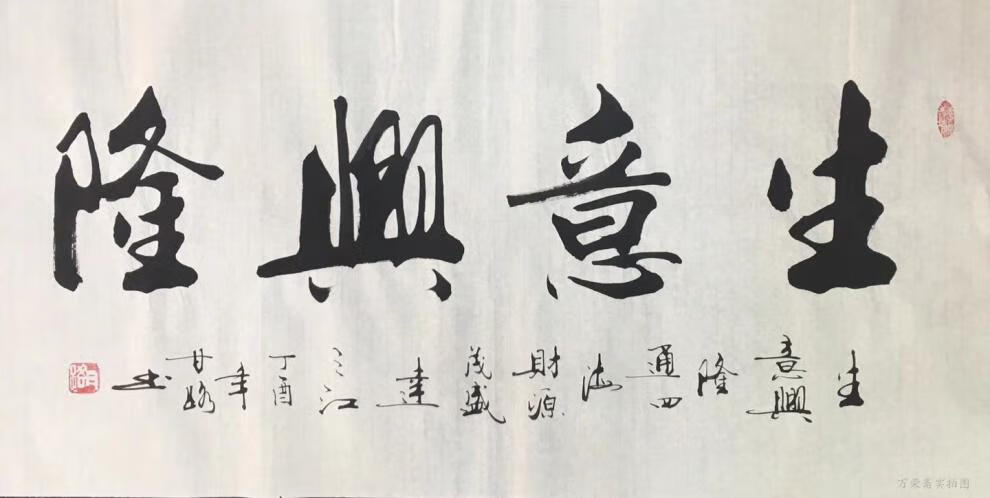 生意興隆
生意興隆通四海財源茂盛達三江丁酉年甘路書
万荣斋实拍图